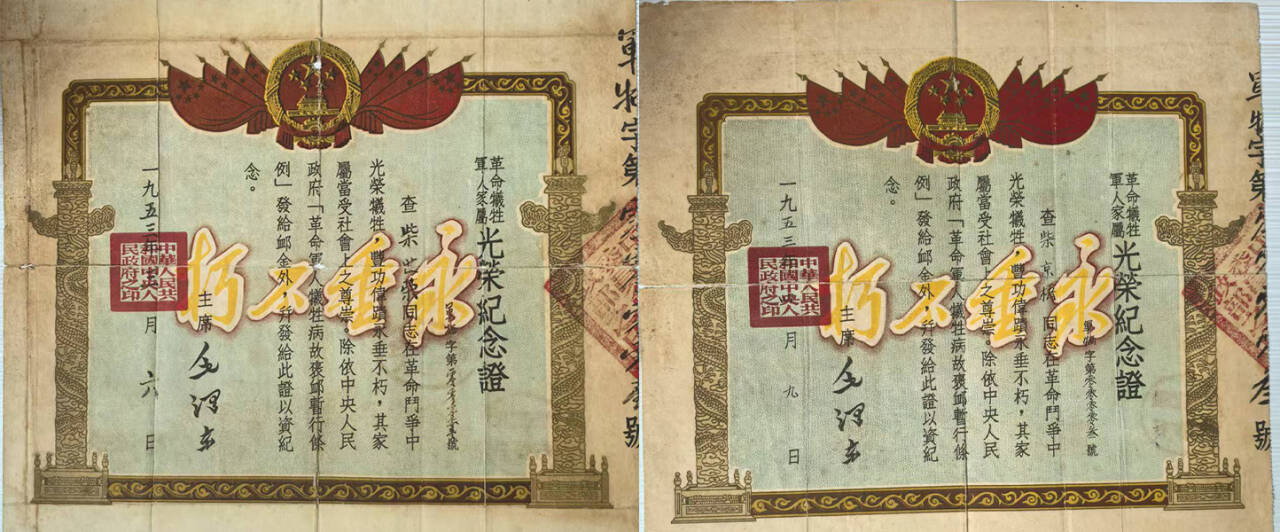 革命犧牲
軍人家屬
光榮紀念證
字第
號
查柴
同志在革命鬥爭中
光榮犧牲，豐功偉績永垂不朽，其家
屬當受社會上之尊崇。除依中央人民
政府「革命軍人犧牲病故褒卹暫行條
例」發給卹金外，幷發給此證以資紀
念。
永垂不朽
主席 毛澤東
一九五三年
月六日
中華人民共
和國中央人
民政府之印
軍
字第
號
革命犧牲
軍人家屬
光榮紀念證
字第
號
查柴京
同志在革命鬥爭中
光榮犧牲，豐功偉績永垂不朽，其家
屬當受社會上之尊崇。除依中央人民
政府「革命軍人犧牲病故褒卹暫行條
例」發給卹金外，幷發給此證以資紀
念。
永垂不朽
主席 毛澤東
一九五三年
月九日
中華人民共
和國中央人
民政府之印
字第
號